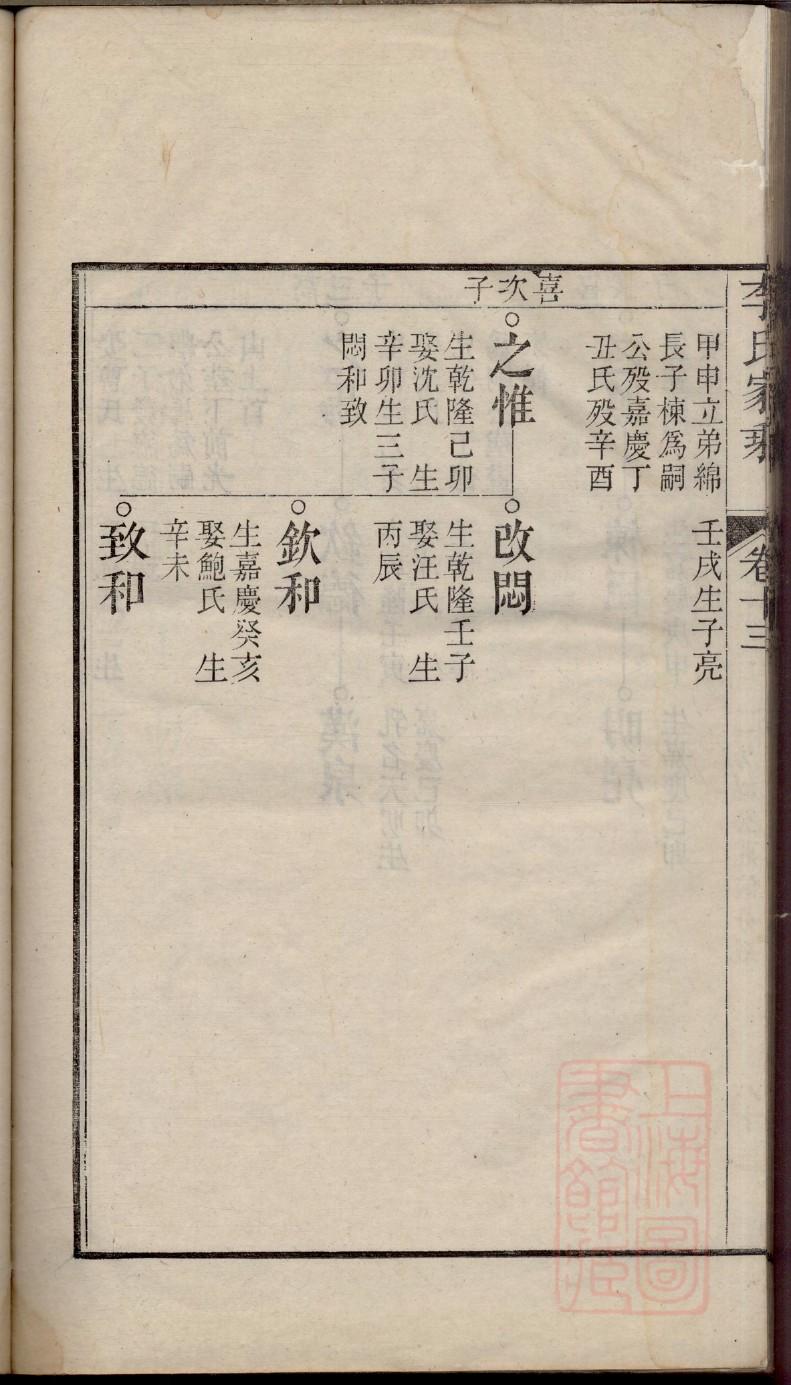 李氏家乘
卷十三
甲申立弟綿
長子棟爲嗣
公殁嘉慶丁
丑氏殁辛酉
壬戌生子亮
喜次子
之惟
生乾隆己卯
娶沈氏 生
辛卯生三子
悶和致
改悶
生乾隆壬子
娶汪氏 生
丙辰
欽和
生嘉慶癸亥
娶鮑氏 生
辛未
致和
上海圖
書館藏